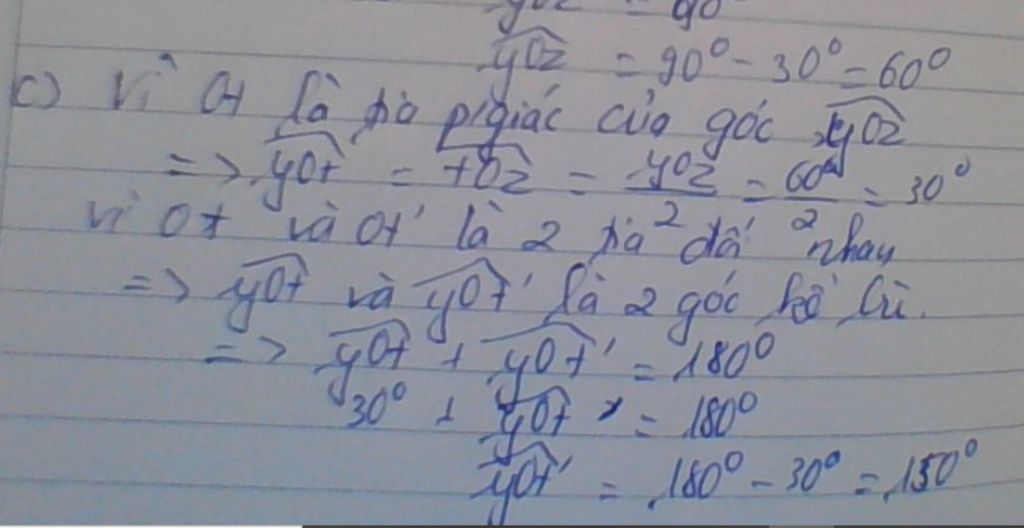 yOz = 90
yOz = 90° - 30° = 60°
c) Vì Ot là tia p/giác của góc yOz
=> yOt = tOz = yOz/2 = 60°/2 = 30°
Vì Ot và Ot' là 2 tia đối nhau
=> yOt và yOt' là 2 góc kề bù.
=> yOt + yOt' = 180°
30° + yOt' = 180°
yOt' = 180° - 30° = 150°